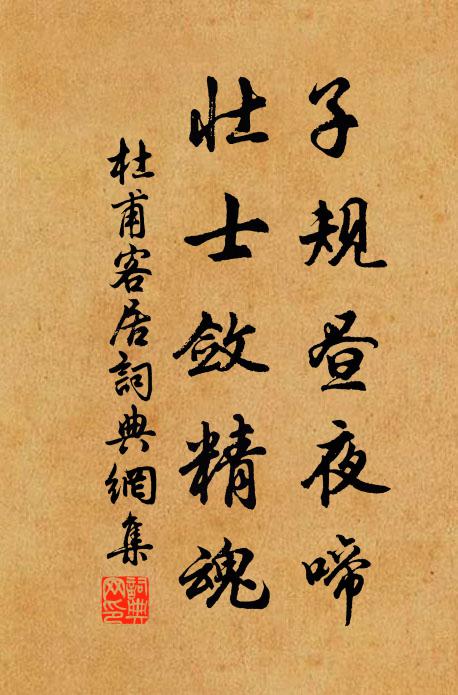 子規昼夜啼
壮士斂精魂
杜甫客居詞典網集
詞典网印